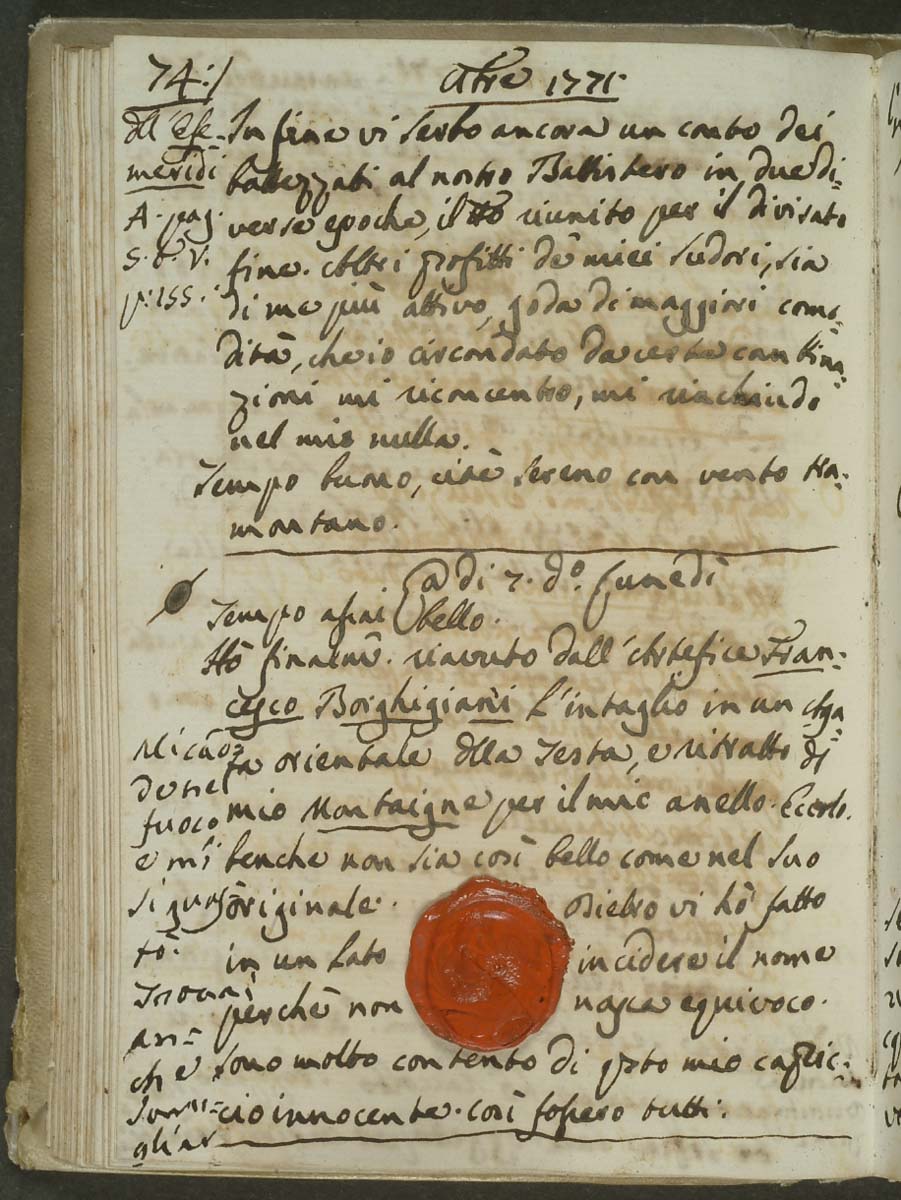 74:/
8bre 1771.
dll' Efe-
meridi
A. pag.
S. e V.
p: 155.
In fine vi serbo ancora un conto dei
battezzati al nostro Battistero in due di-
verse epoche, il tto riunito per il divisato
fine. Altri profitti de miei sudori, sia
di me più attivo, goda di maggiori como-
dità, che io circondato da certe
zioni mi riconcentro, mi riachiudo
nel mio nulla.
Tempo buono, cioè sereno con vento tra-
montano.
a di 7. do. Lunedì
Tempo assai bello.
Hò finalmte. riavuto dall' Artefice Fran-
cesco Borghigiani l'intaglio in un Aga-
ta orientale dlla Testa, e ritratto di
mio Montaigne per il mio anello. Eccolo.
benche non sia così bello come nel suo
originale. Dietro vi hò fatto
in un lato incidere il nome
perchè non nasca equivoco.
Sono molto contento di qsto mio capric-
cio innocente. così fossero tutti.
de nel
fuoco
e mi
si guas-
tò.
Trovai
an-
che